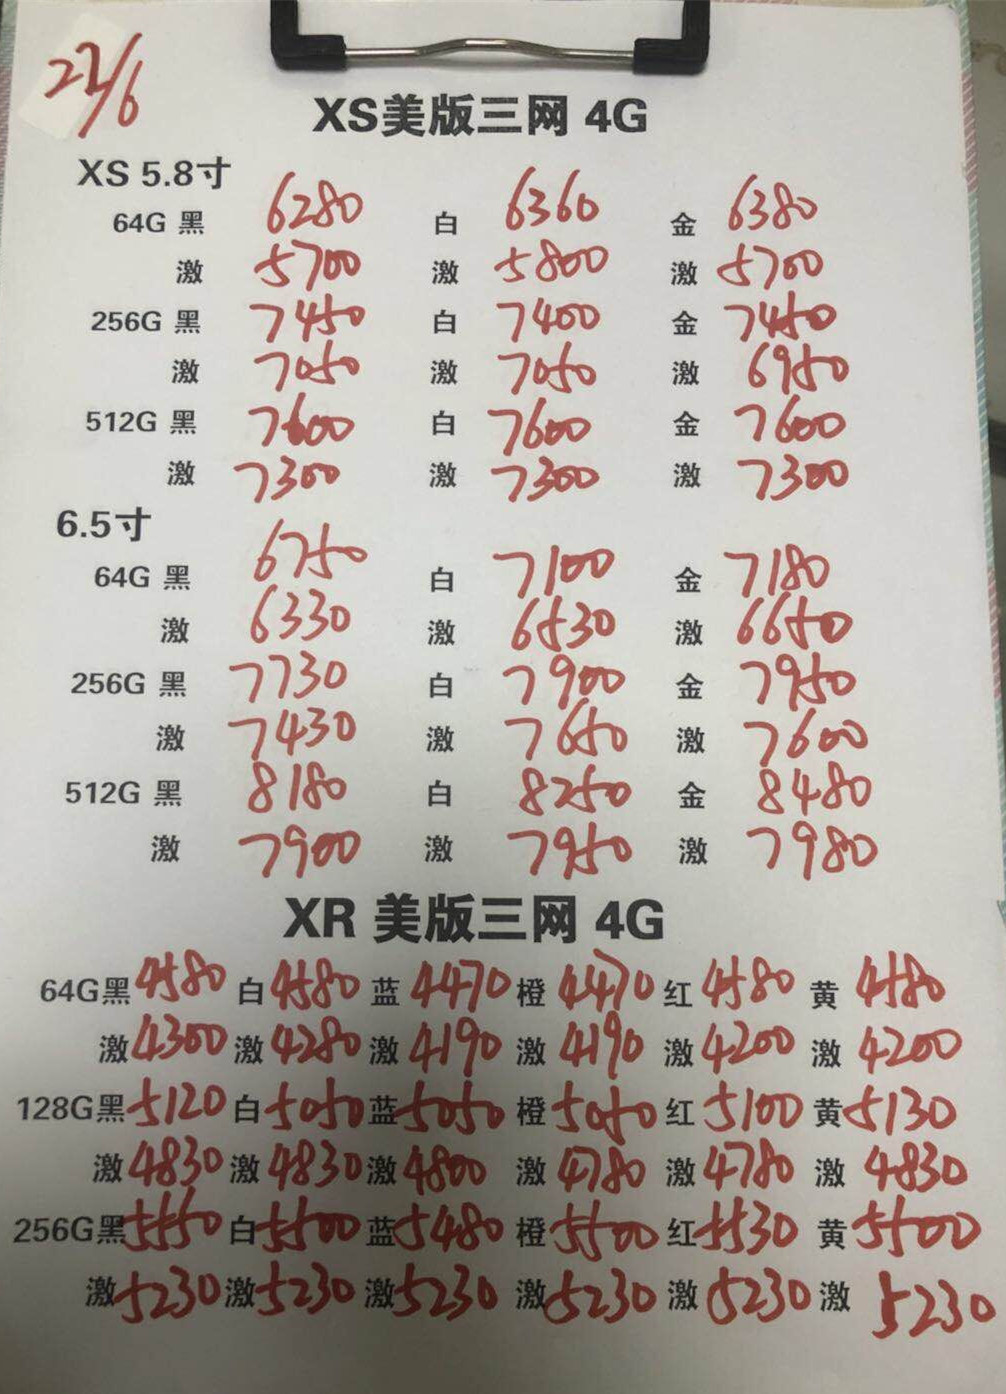 22/6
XS美版三网 4G
XS 5.8寸
64G 黑 6280 白 6360 金 6380
激 5700 激 5800 激 5700
256G 黑 7450 白 7400 金 7450
激 7050 激 7050 激 6950
512G 黑 7600 白 7600 金 7600
激 7300 激 7300 激 7300
6.5寸
64G 黑 6750 白 7100 金 7180
激 6330 激 6530 激 6650
256G 黑 7730 白 7900 金 7950
激 7430 激 7650 激 7600
512G 黑 8180 白 8250 金 8480
激 7900 激 7950 激 7980
XR 美版三网 4G
64G黑 4580 白 4580 蓝 4470 橙 4470 红 4580 黄 4580
激 4300 激 4280 激 4190 激 4190 激 4200 激 4200
128G黑 5120 白 5050 蓝 5050 橙 5050 红 5100 黄 5130
激 4830 激 4830 激 4800 激 4780 激 4780 激 4830
256G黑 5550 白 5500 蓝 5480 橙 5500 红 5530 黄 5500
激 5230 激 5230 激 5230 激 5230 激 5230 激 5230